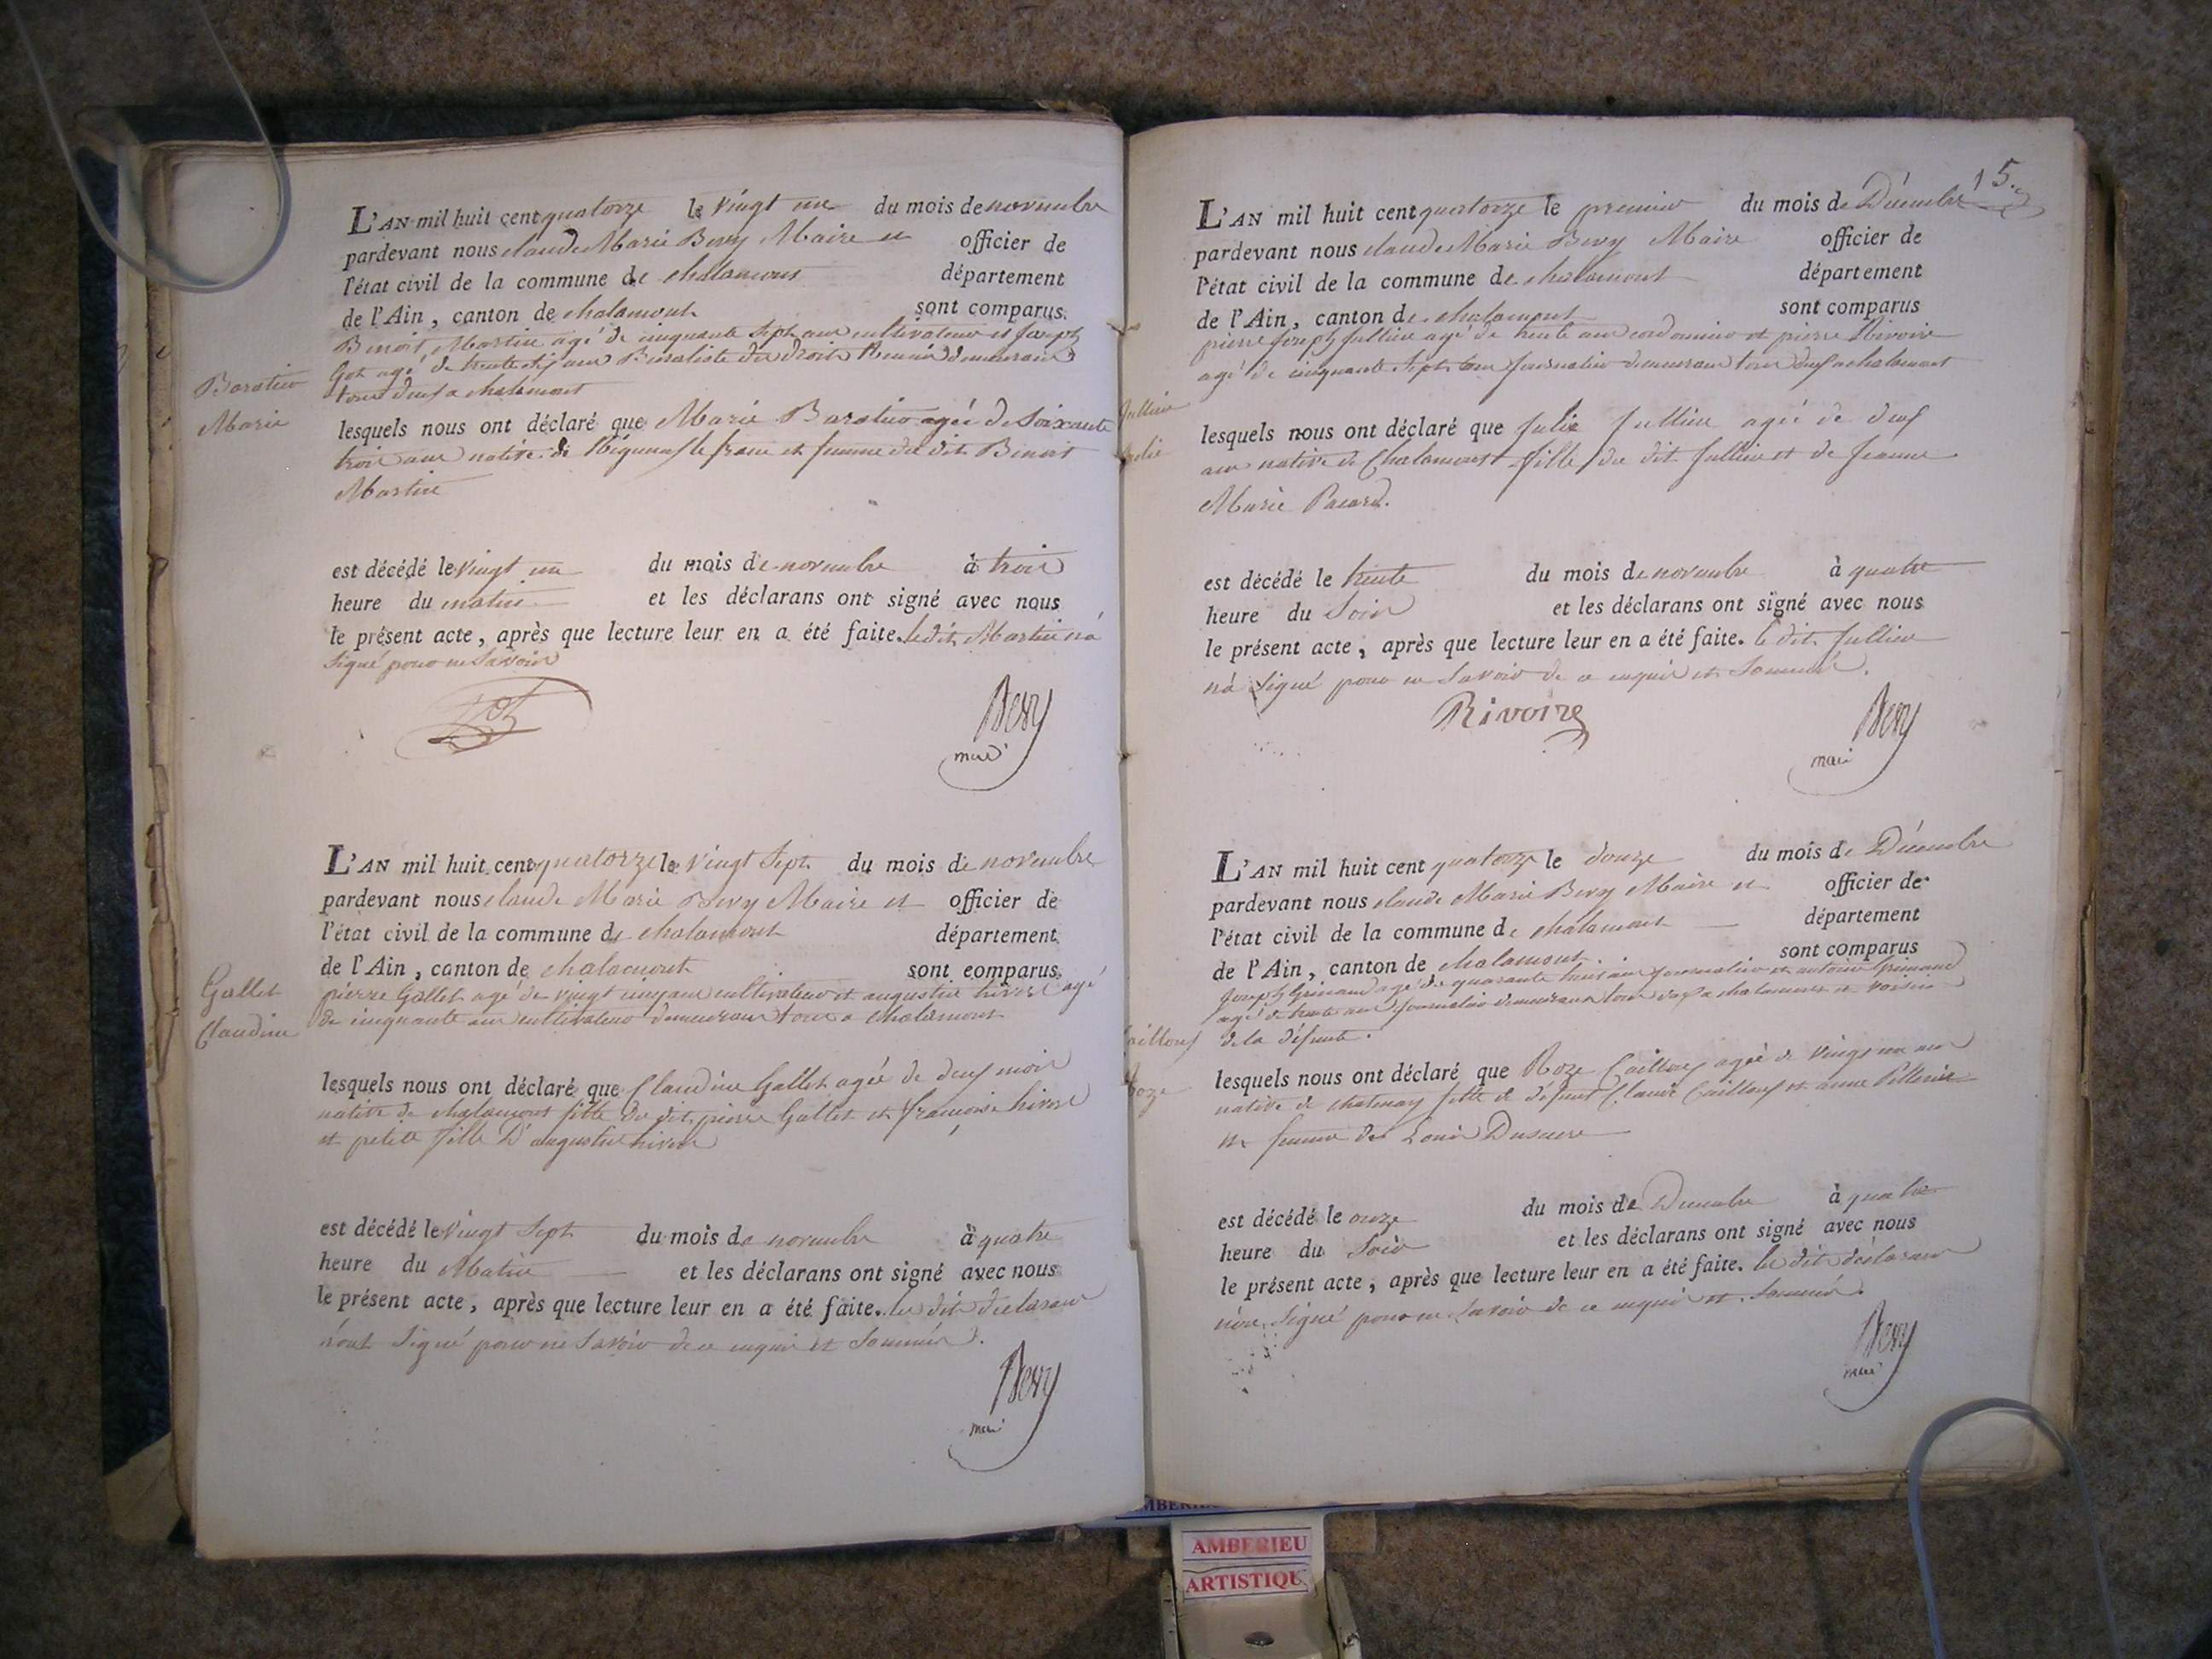 Baratier
Marie
L'AN mil huit cent quatorze le vingt un du mois de novembre
pardevant nous claude Marie Bevy Maire et officier de
l'état civil de la commune de chalamont département
de l'Ain, canton de chalamont sont comparus.
Benoit Martin agé de cinquante sept ans cultivateur et Joseph
Got agé de trente ans Buraliste des droits Reunis demeurans
tous deux a chalamont
lesquels nous ont déclaré que Marie Baratier agée de Soixante
trois ans native de Rigneux le franc et femme du dit Benoit
Martin
est décédé le vingt un du mois de novembre à trois
heure du matin et les déclarans ont signé avec nous
le présent acte, après que lecture leur en a été faite. le dit Martin n'a
signé pour ne savoir
Got
Bevy
maire
Gallet
Claudine
L'AN mil huit cent quatorze le vingt sept du mois de novembre
pardevant nous claude Marie Bevy Maire et officier de
l'état civil de la commune de chalamont département
de l'Ain, canton de chalamont sont comparus.
pierre Gallet agé de vingt cinq ans cultivateur et augustin hivert agé
de cinquante ans cultivateur demeurans tous a chalamont
lesquels nous ont déclaré que Claudine Gallet agée de deux mois
native de chalamont fille du dit pierre Gallet et françoise hivert
et petite fille D'augustin hivert
est décédé le vingt sept du mois de novembre à quatre
heure du Matin et les déclarans ont signé avec nous
le présent acte, après que lecture leur en a été faite. les dits declarans
n'ont signé pour ne savoir de ce enquis et sommés.
Bevy
maire
15.
Jullien
Julie
L'AN mil huit cent quatorze le premier du mois de Décembre
pardevant nous claude Marie Bevy Maire officier de
l'état civil de la commune de chalamont département
de l'Ain, canton de chalamont sont comparus
pierre Joseph Jullien agé de trente ans cordonnier et pierre Rivoire
agé de cinquante sept ans journalier demeurans tous deux a chalamont
lesquels nous ont déclaré que Julie Jullien agée de deux
ans native de Chalamont fille du dit Jullien et de Jeanne
Marie Pacard.
est décédé le trente du mois de novembre à quatre
heure du Soir et les déclarans ont signé avec nous
le présent acte, après que lecture leur en a été faite. le dit Jullien
n'a signé pour ne savoir de ce enquis et sommé.
Rivoire
Bevy
maire
Cailloux
Roze
L'AN mil huit cent quatorze le douze du mois de Décembre
pardevant nous claude Marie Bevy Maire et officier de
l'état civil de la commune de chalamont département
de l'Ain, canton de chalamont. sont comparus
Joseph Grimaud agé de quarante huit ans journalier et antoine Grimaud
agé de trente ans journalier demeurans tous deux a chalamont et voisins
de la défunte.
lesquels nous ont déclaré que Roze Cailloux agée de vingt un ans
native de chatenay fille de défunt Claude Cailloux et anne Pellerin
et femme de Louis Dusuere
est décédé le onze du mois de Decembre à quatre
heure du Soir et les déclarans ont signé avec nous
le présent acte, après que lecture leur en a été faite. les dits déclarans
n'ont signé pour ne savoir de ce enquis et sommés.
Bevy
maire
AMBERIEU
ARTISTIQU